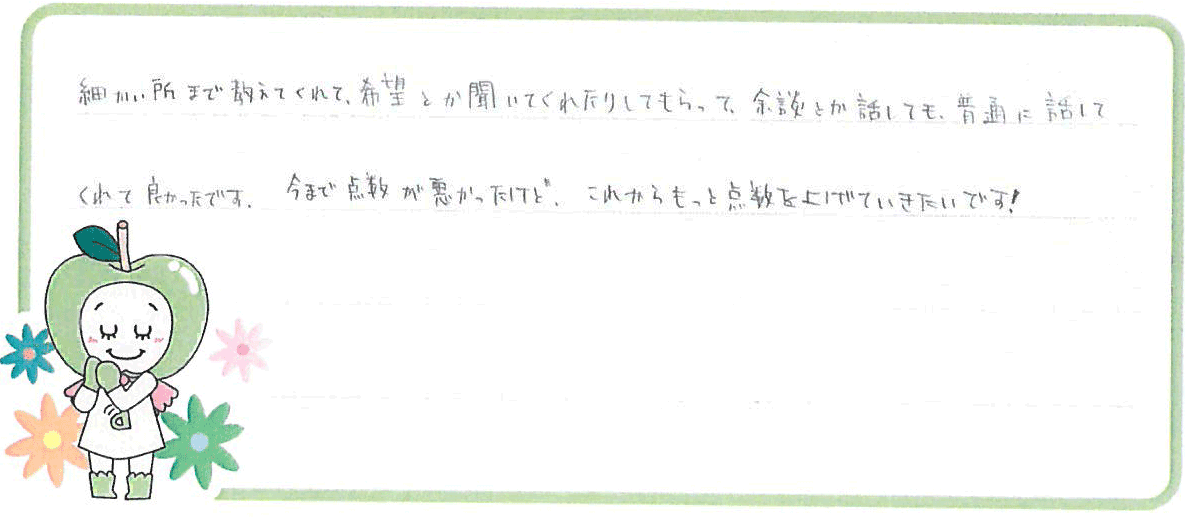 細かい所まで教えてくれて、希望とか聞いてくれたりしてもらって、余談とか話しても、普通に話して
くれて良かったです。今まで点数が悪かったけど、これからもっと点数を上げていきたいです!